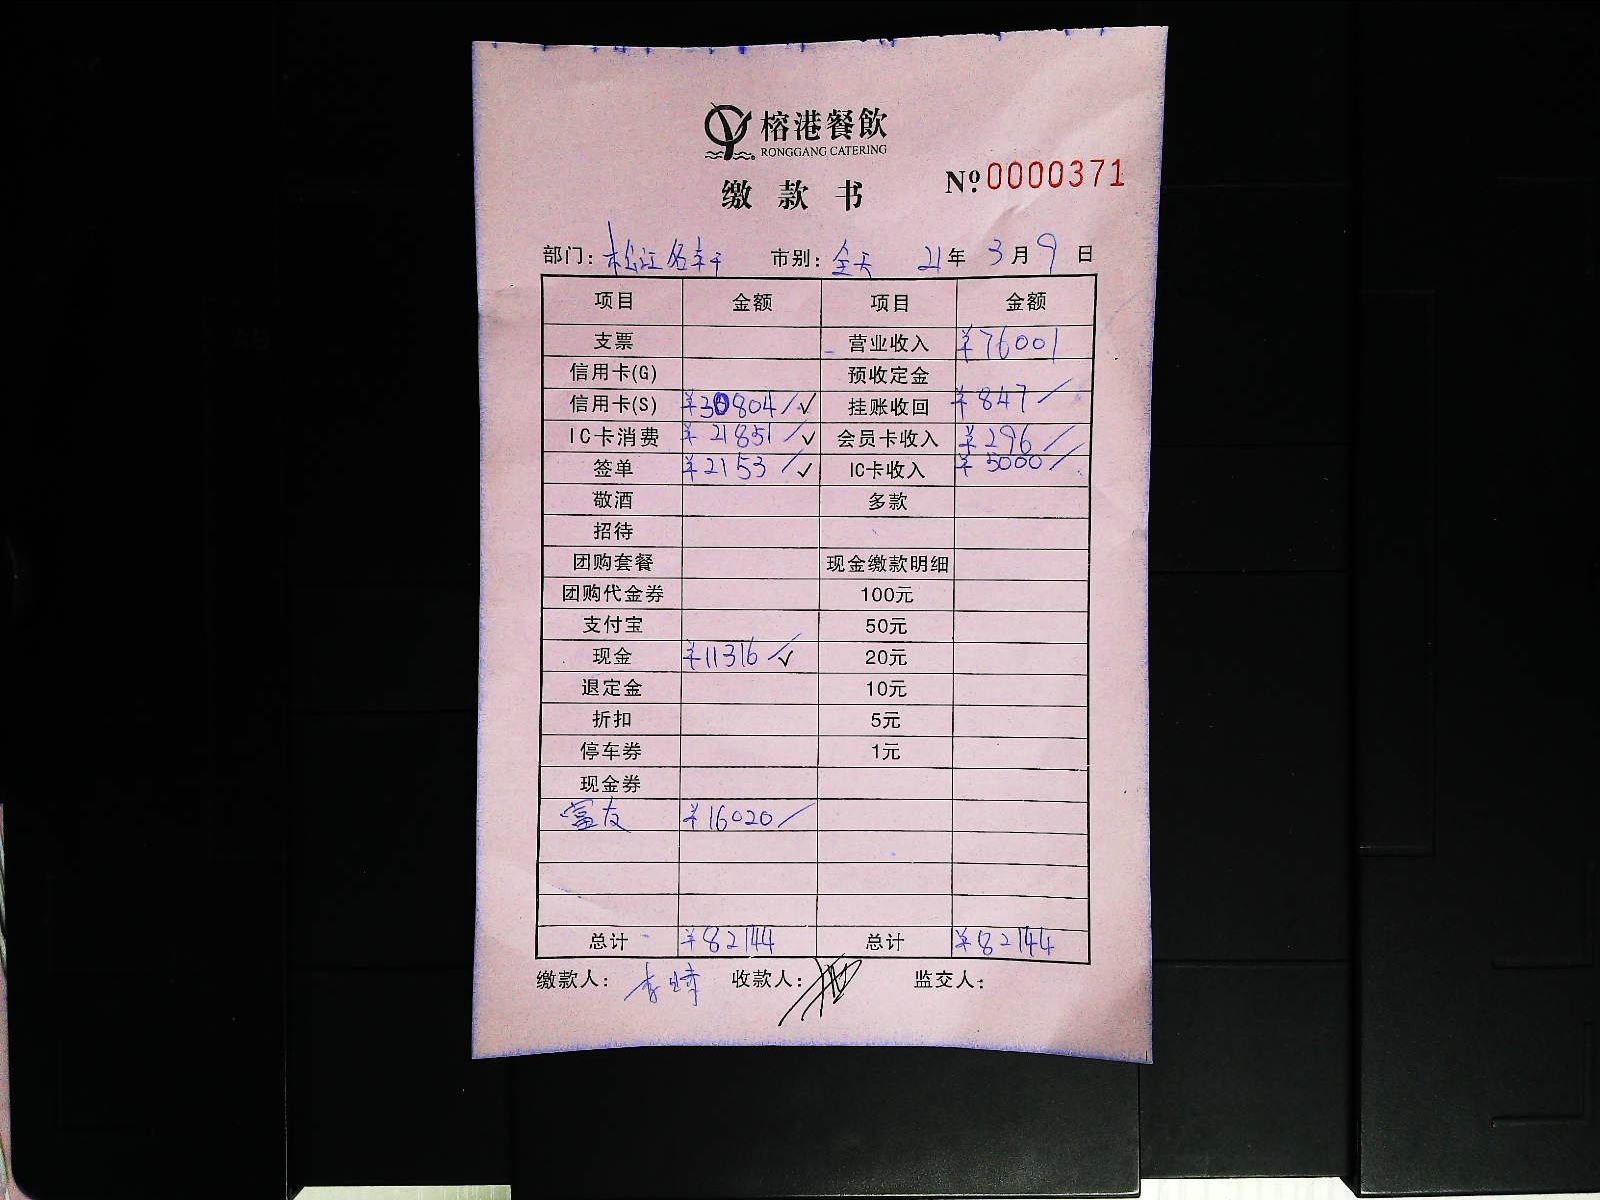 榕港餐飲
RONGGANG CATERING
缴款书
Nº 0000371
部门：松江名轩 市别：全天 21年 3月 9日
项目 金额 项目 金额
支票 营业收入 ¥76001
信用卡(G) 预收定金
信用卡(S) ¥30804 ✓ 挂账收回 ¥847
IC卡消费 ¥21851 ✓ 会员卡收入 ¥296
签单 ¥2153 ✓ IC卡收入 ¥5000
敬酒 多款
招待
团购套餐 现金缴款明细
团购代金券 100元
支付宝 50元
现金 ¥11316 ✓ 20元
退定金 10元
折扣 5元
停车券 1元
现金券
富友 ¥16020
总计 ¥82144 总计 ¥82144
缴款人： 收款人： 监交人：